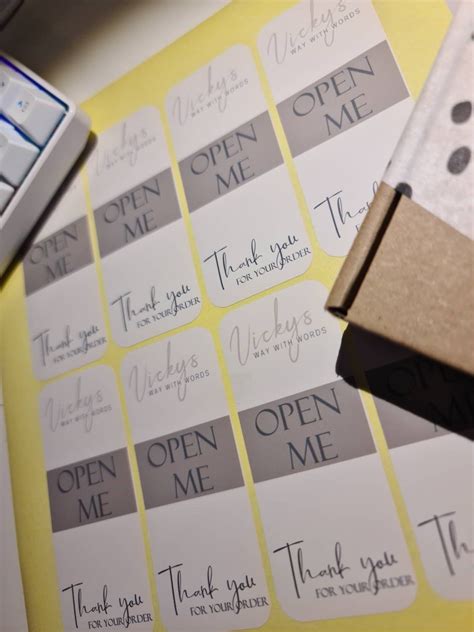 OPEN
ME
Thank you
FOR YOUR ORDER
Vickys
WAY WITH WORDS
OPEN
ME
Thank you
FOR YOUR ORDER
Vickys
WAY WITH WORDS
OPEN
ME
Thank you
FOR YOUR ORDER
Vickys
WAY WITH WORDS
OPEN
ME
Vickys
WAY WITH WORDS
OPEN
ME
Thank you
FOR YOUR ORDER
Vickys
WAY WITH WORDS
OPEN
ME
Thank you
FOR YOUR ORDER
Vickys
WAY WITH WORDS
OPEN
ME
Thank you
FOR YOUR ORDER
OPEN
ME